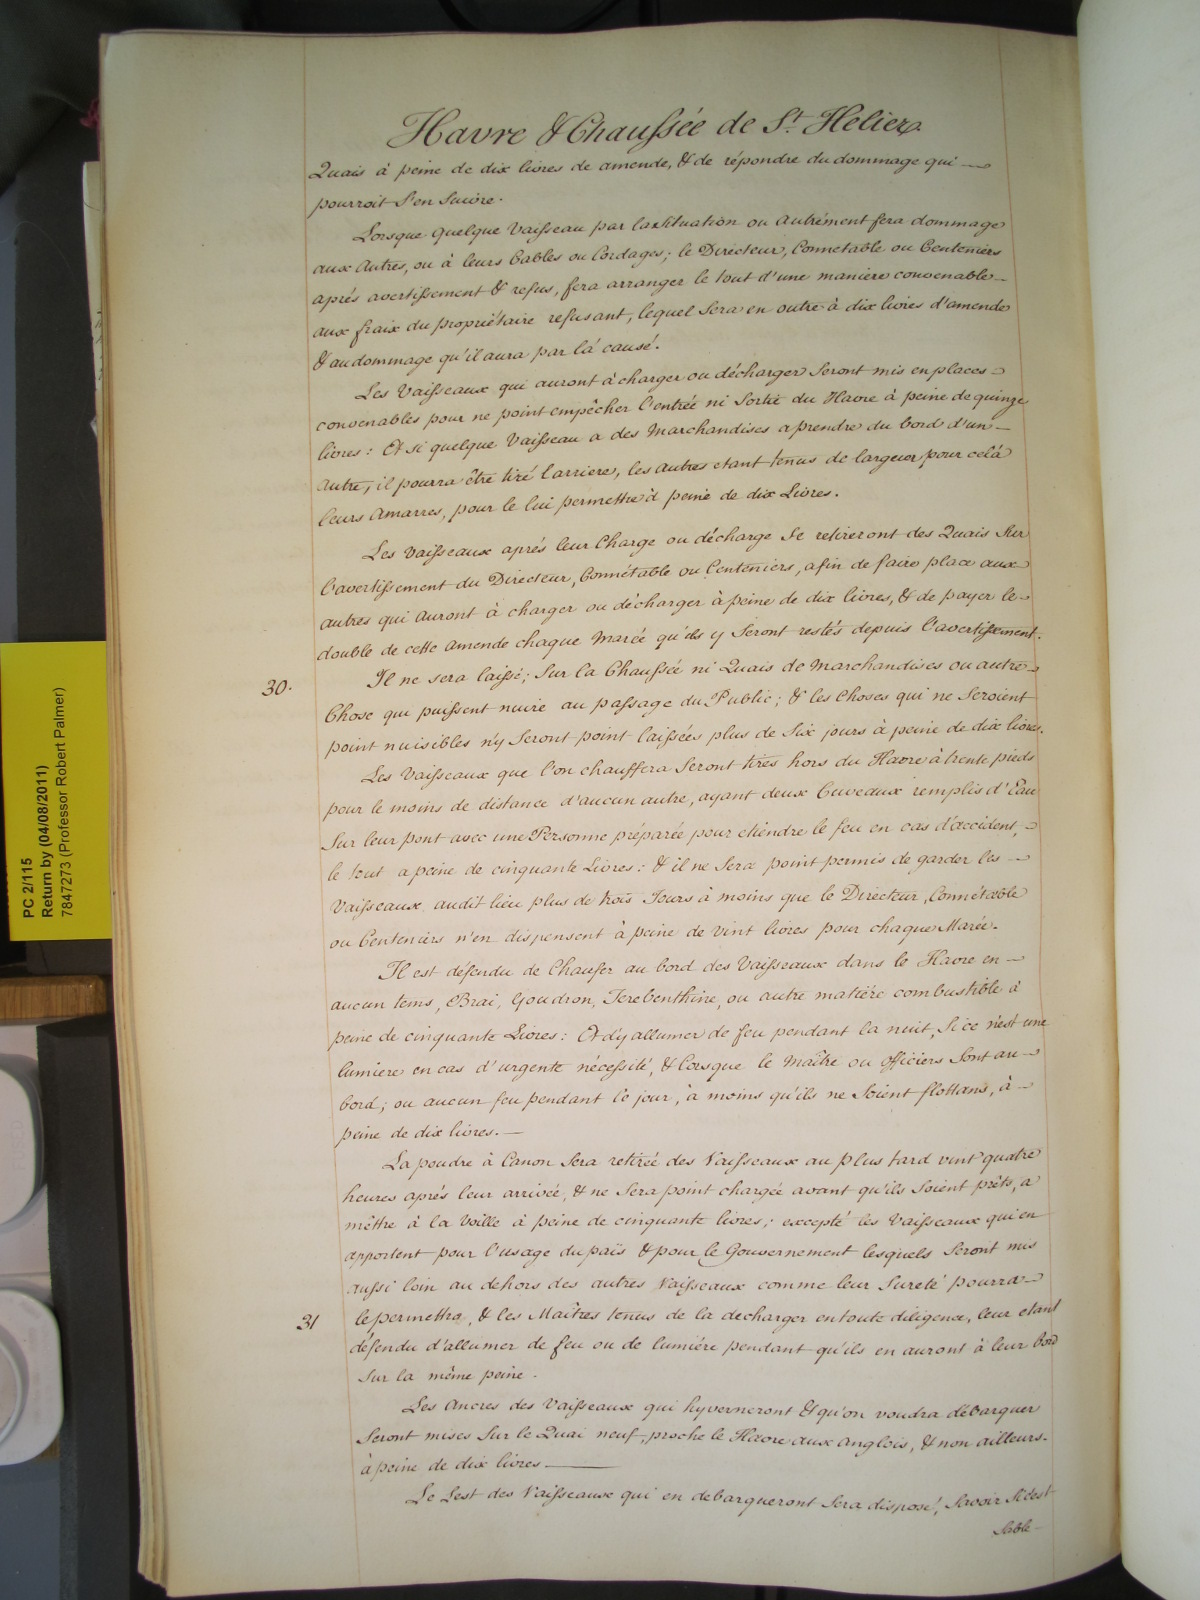 Havre & Chaussée de St. Helier.
Quais à peine de dix livres de amende, & de répondre du dommage qui
pourroit s'en suivre.
Lorsque quelque Vaisseau par la situation ou autrement fera dommage
aux Autres, ou à leurs Cables ou Cordages; le Directeur, Connetable ou Centeniers
aprés avertissement & refus, fera arranger le tout d'une maniere convenable
aux fraix du propriétaire refusant, lequel sera en outre à dix livres d'amende
& au dommage qu'il aura par là causé.
Les Vaisseaux qui auront à charger ou décharger seront mis en places
convenables pour ne point empêcher l'entrée ni sortie du Havre à peine de quinze
livres: Et si quelque Vaisseau a des Marchandises a prendre du bord d'un
autre, il pourra être tiré l'arriere, les autres etant tenus de larguer pour celà
leurs Amarres, pour le lui permettre à peine de dix Livres.
Les Vaisseaux aprés leur Charge ou décharge se retireront des Quais sur
l'avertissement du Directeur, Connétable ou Centeniers, afin de faire place aux
autres qui auront à charger ou décharger à peine de dix livres, & de payer le
double de cette Amende chaque Marée qu'ils y seront restés depuis l'avertissement.
30. Il ne sera laissé; sur la Chaussée ni Quais de Marchandises ou autre
Chose qui puissent nuire au passage du Public; & les Choses qui ne seroient
point nuisibles n'y seront point laissées plus de six jours à peine de dix livres.
Les Vaisseaux que l'on chauffera seront tirés hors du Havre à trente pieds
pour le moins de distance d'aucun autre, ayant deux Cuveaux remplis d'Eau
sur leur pont avec une Personne préparée pour eteindre le feu en cas d'accident,
le tout a peine de cinquante Livres: & il ne sera point permis de garder les
Vaisseaux audit lieu plus de trois Jours à moins que le Directeur, Connétable
ou Centeniers n'en dispensent à peine de vint livres pour chaque Marée.
Il est défendu de Chaufer au bord des Vaisseaux dans le Havre en
aucun tems, Brai, Goudron, Terebenthine, ou autre matière combustible à
peine de cinquante Livres: Et d'y allumer de feu pendant la nuit, si ce n'est une
lumiere en cas d'urgente nécessité, & lorsque le Maître ou Officiers sont au
bord; ou aucun feu pendant le jour, à moins qu'ils ne soient flottans, à
peine de dix livres.
La poudre à Canon sera retirée des Vaisseaux au plus tard vint quatre
heures aprés leur arrivée, & ne sera point chargée avant qu'ils soient prêts, a
mêttre à la Voille à peine de cinquante livres; excepté les Vaisseaux qui en
apportent pour l'usage du païs & pour le Gouvernement lesquels seront mis
aussi loin au dehors des autres Vaisseaux comme leur sureté pourra
31 le permettre, & les Maîtres tenus de la decharger en toute diligence, leur etant
défendu d'allumer de feu ou de lumiére pendant qu'ils en auront à leur bord
sur la même peine.
Les Ancres des Vaisseaux qui hyverneront & qu'on voudra débarquer
seront mises sur le Quai neuf, proche le Havre aux Anglois, & non ailleurs.
à peine de dix livres
Le Lest des Vaisseaux qui en debarqueront sera disposé, savoir si c'est
sable
PC 2/115
Return by (04/08/2011)
7847273 (Professor Robert Palmer)